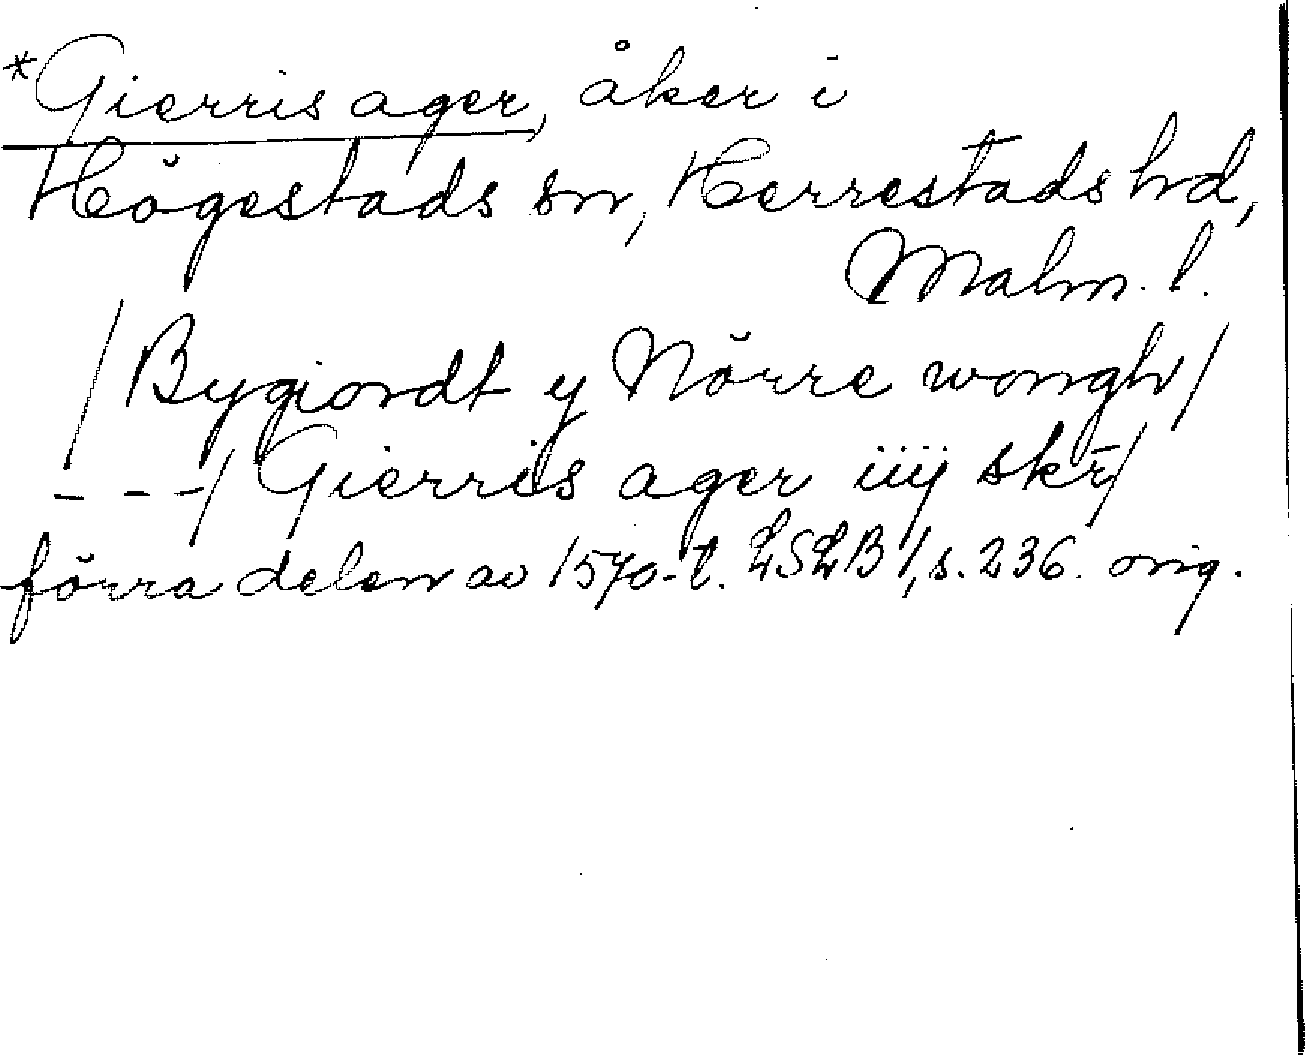 *Gierris ager, åker i
Högestads sn, Herrestads hd,
Malm. l.
/Bygiordt y Nörre wongh/
---/Gierris ager iiij skr̄/
förra delen av 1570-t. LSLB 1, s. 236. orig.